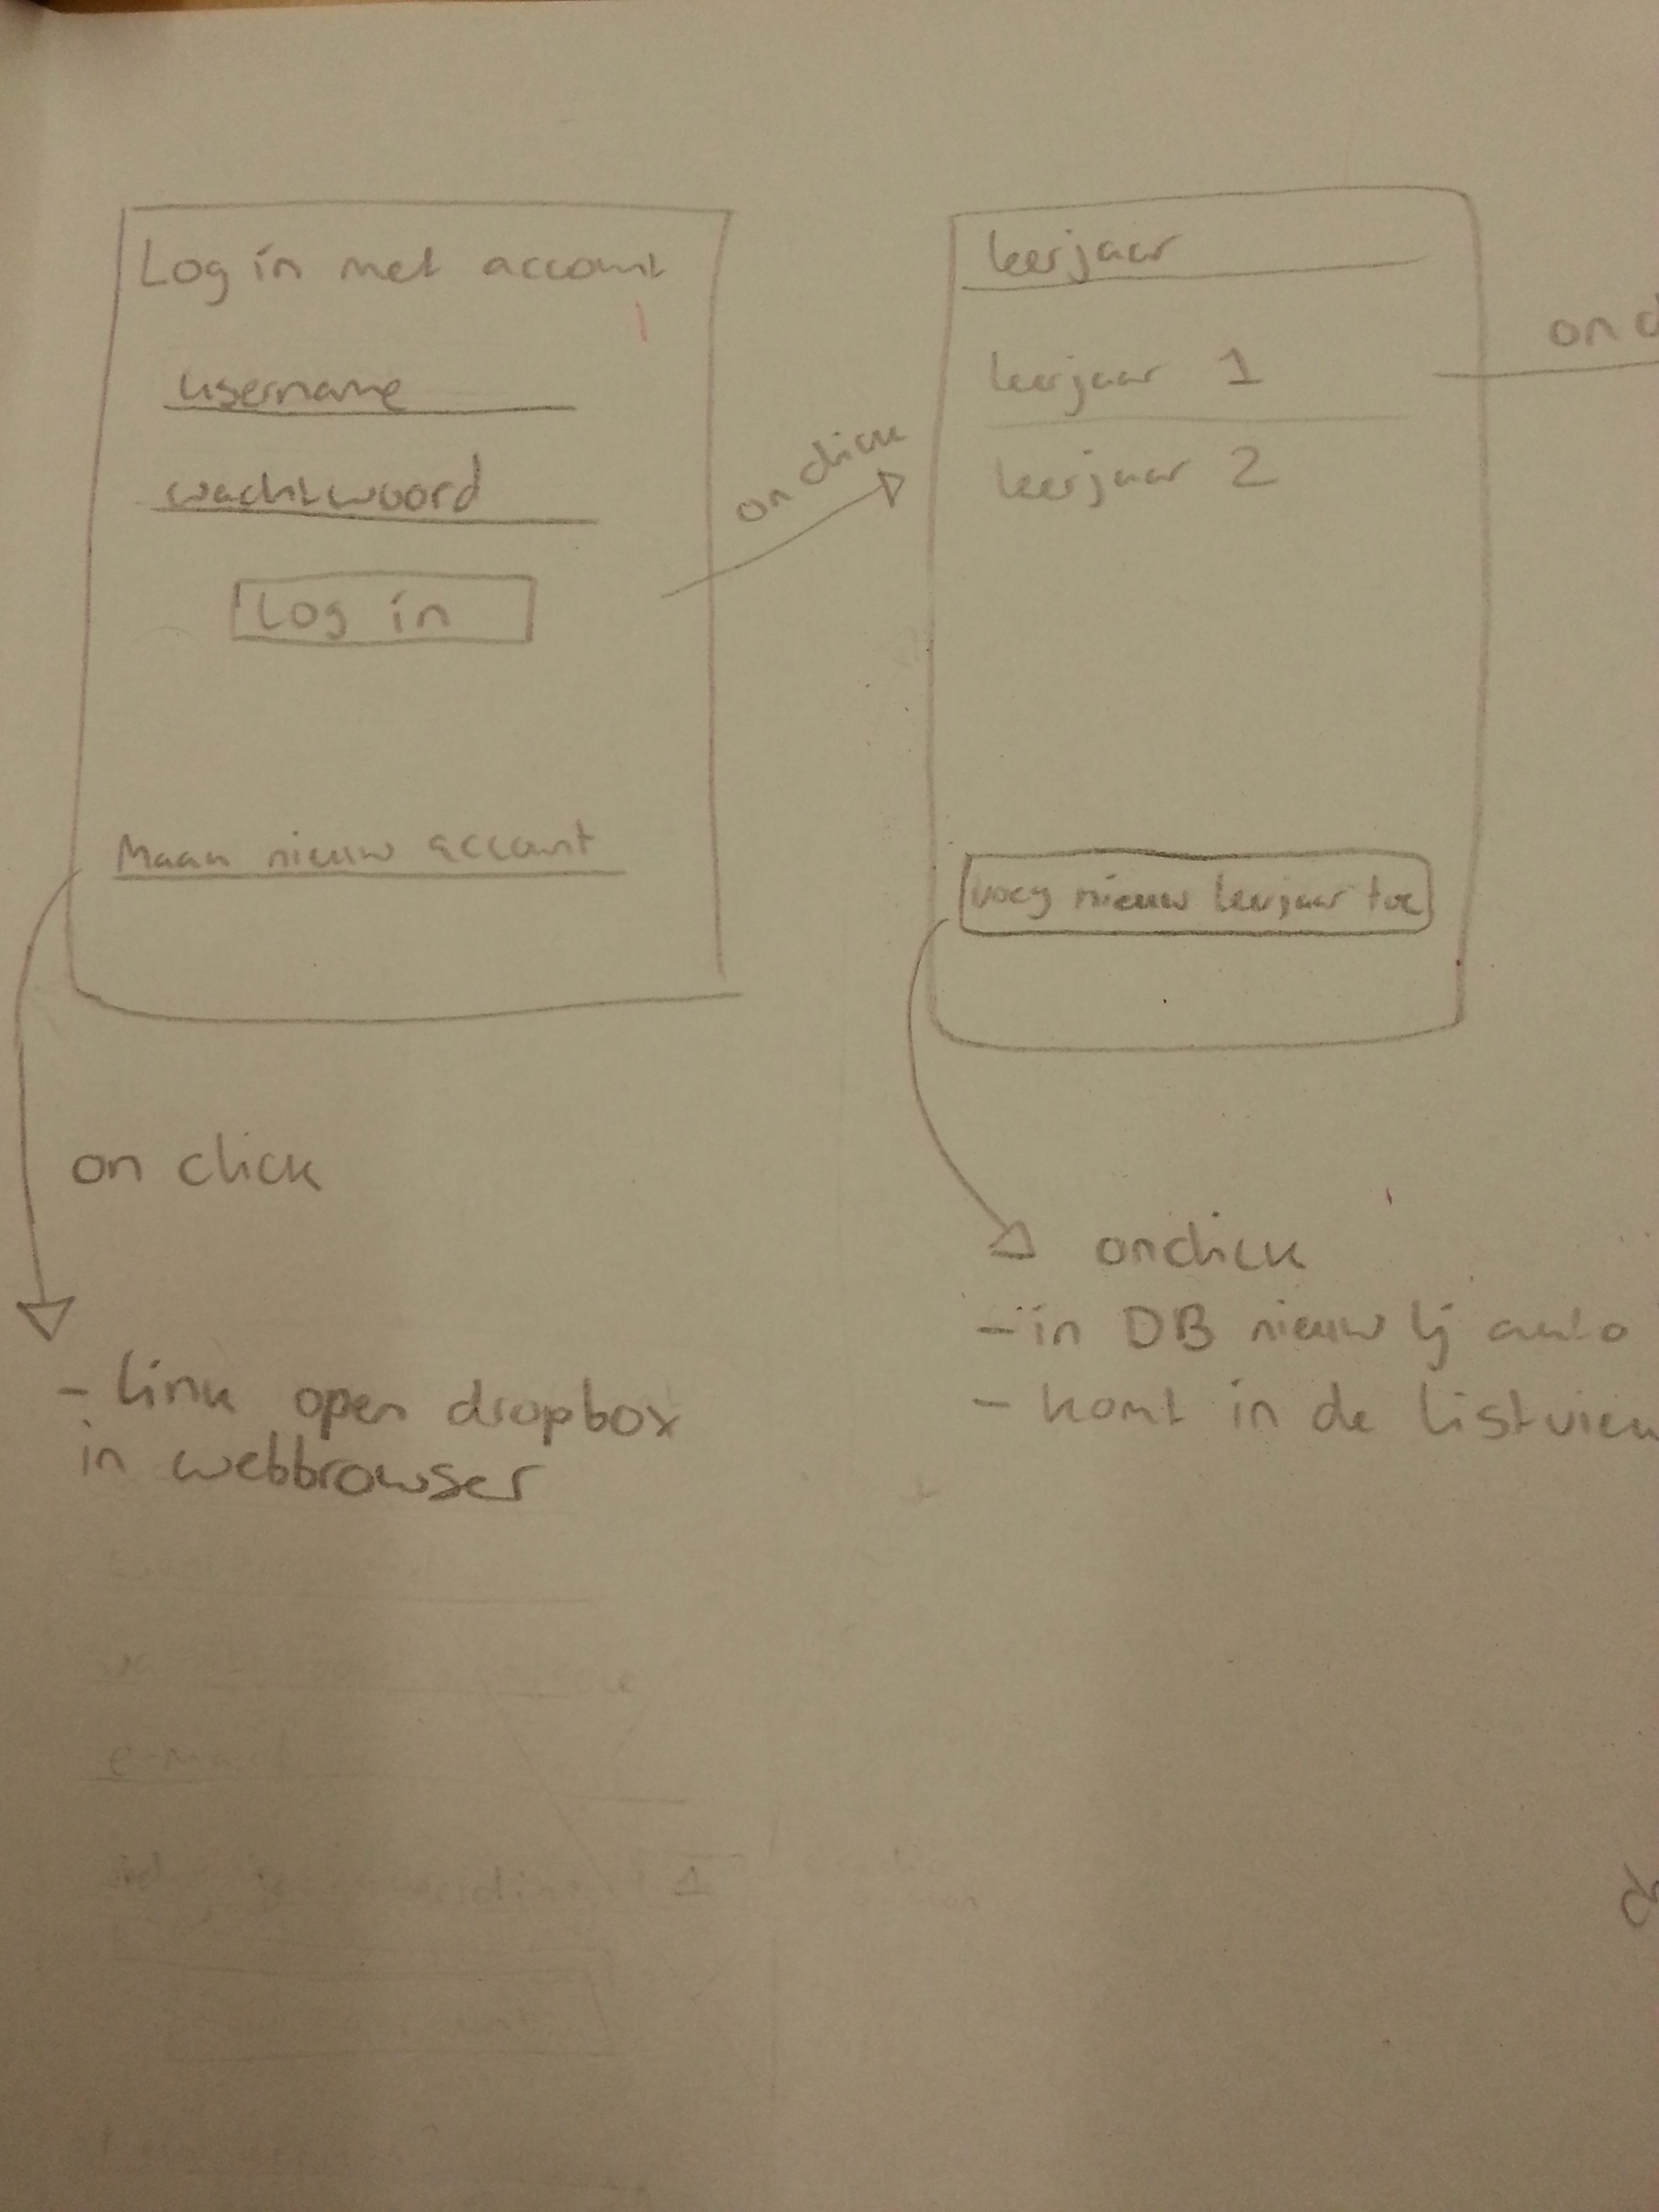 Log in met account
username
wachtwoord
Log in
Maak nieuw account
on click
on click
- link open dropbox
in webbrowser
leerjaar
leerjaar 1
leerjaar 2
voeg nieuw leerjaar toe
on cl
onclick
- in DB nieuw lj auto
- komt in de listview
e-mail
1